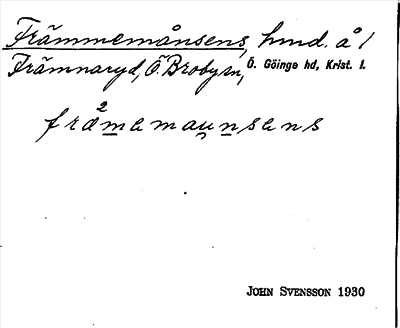 Främmemånsens, hmd. å 1
Främnaryd, Ö. Broby sn, Ö. Göinge hd, Krist. l.
fråmemaunsens
JOHN SVENSSON 1930